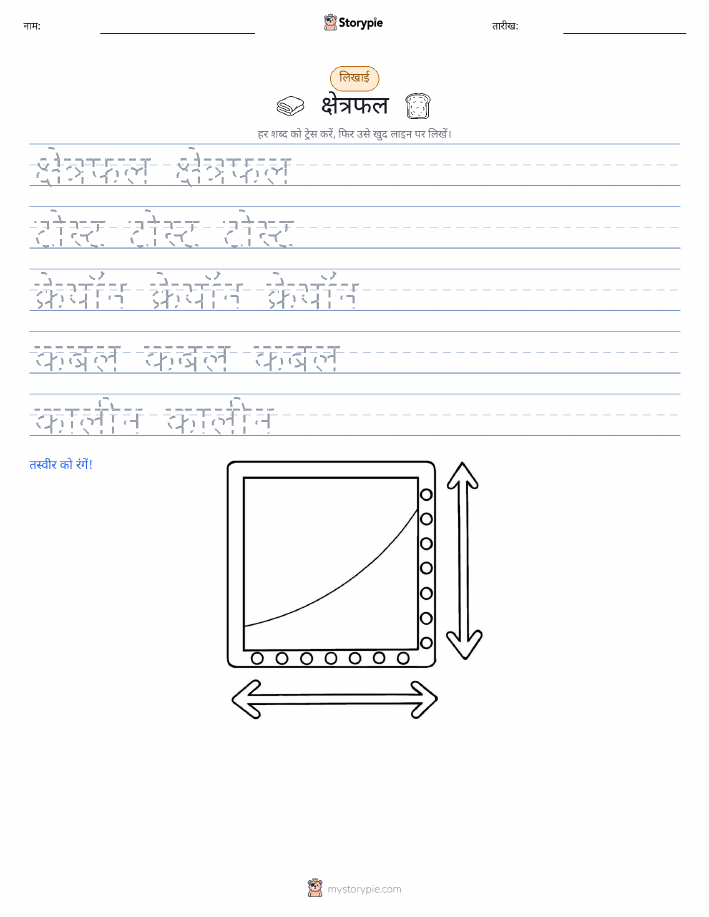 नाम:
Storypie
तारीख:
लिखाई
क्षेत्रफल
हर शब्द को ट्रेस करें, फिर उसे खुद लाइन पर लिखें।
क्षेत्रफल क्षेत्रफल
टोस्ट टोस्ट टोस्ट
क्रेयॉन क्रेयॉन क्रेयॉन
कबल कबल कबल
कालीन कालीन
तस्वीर को रंगें!
mystorypie.com